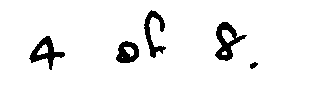 4 of 8.